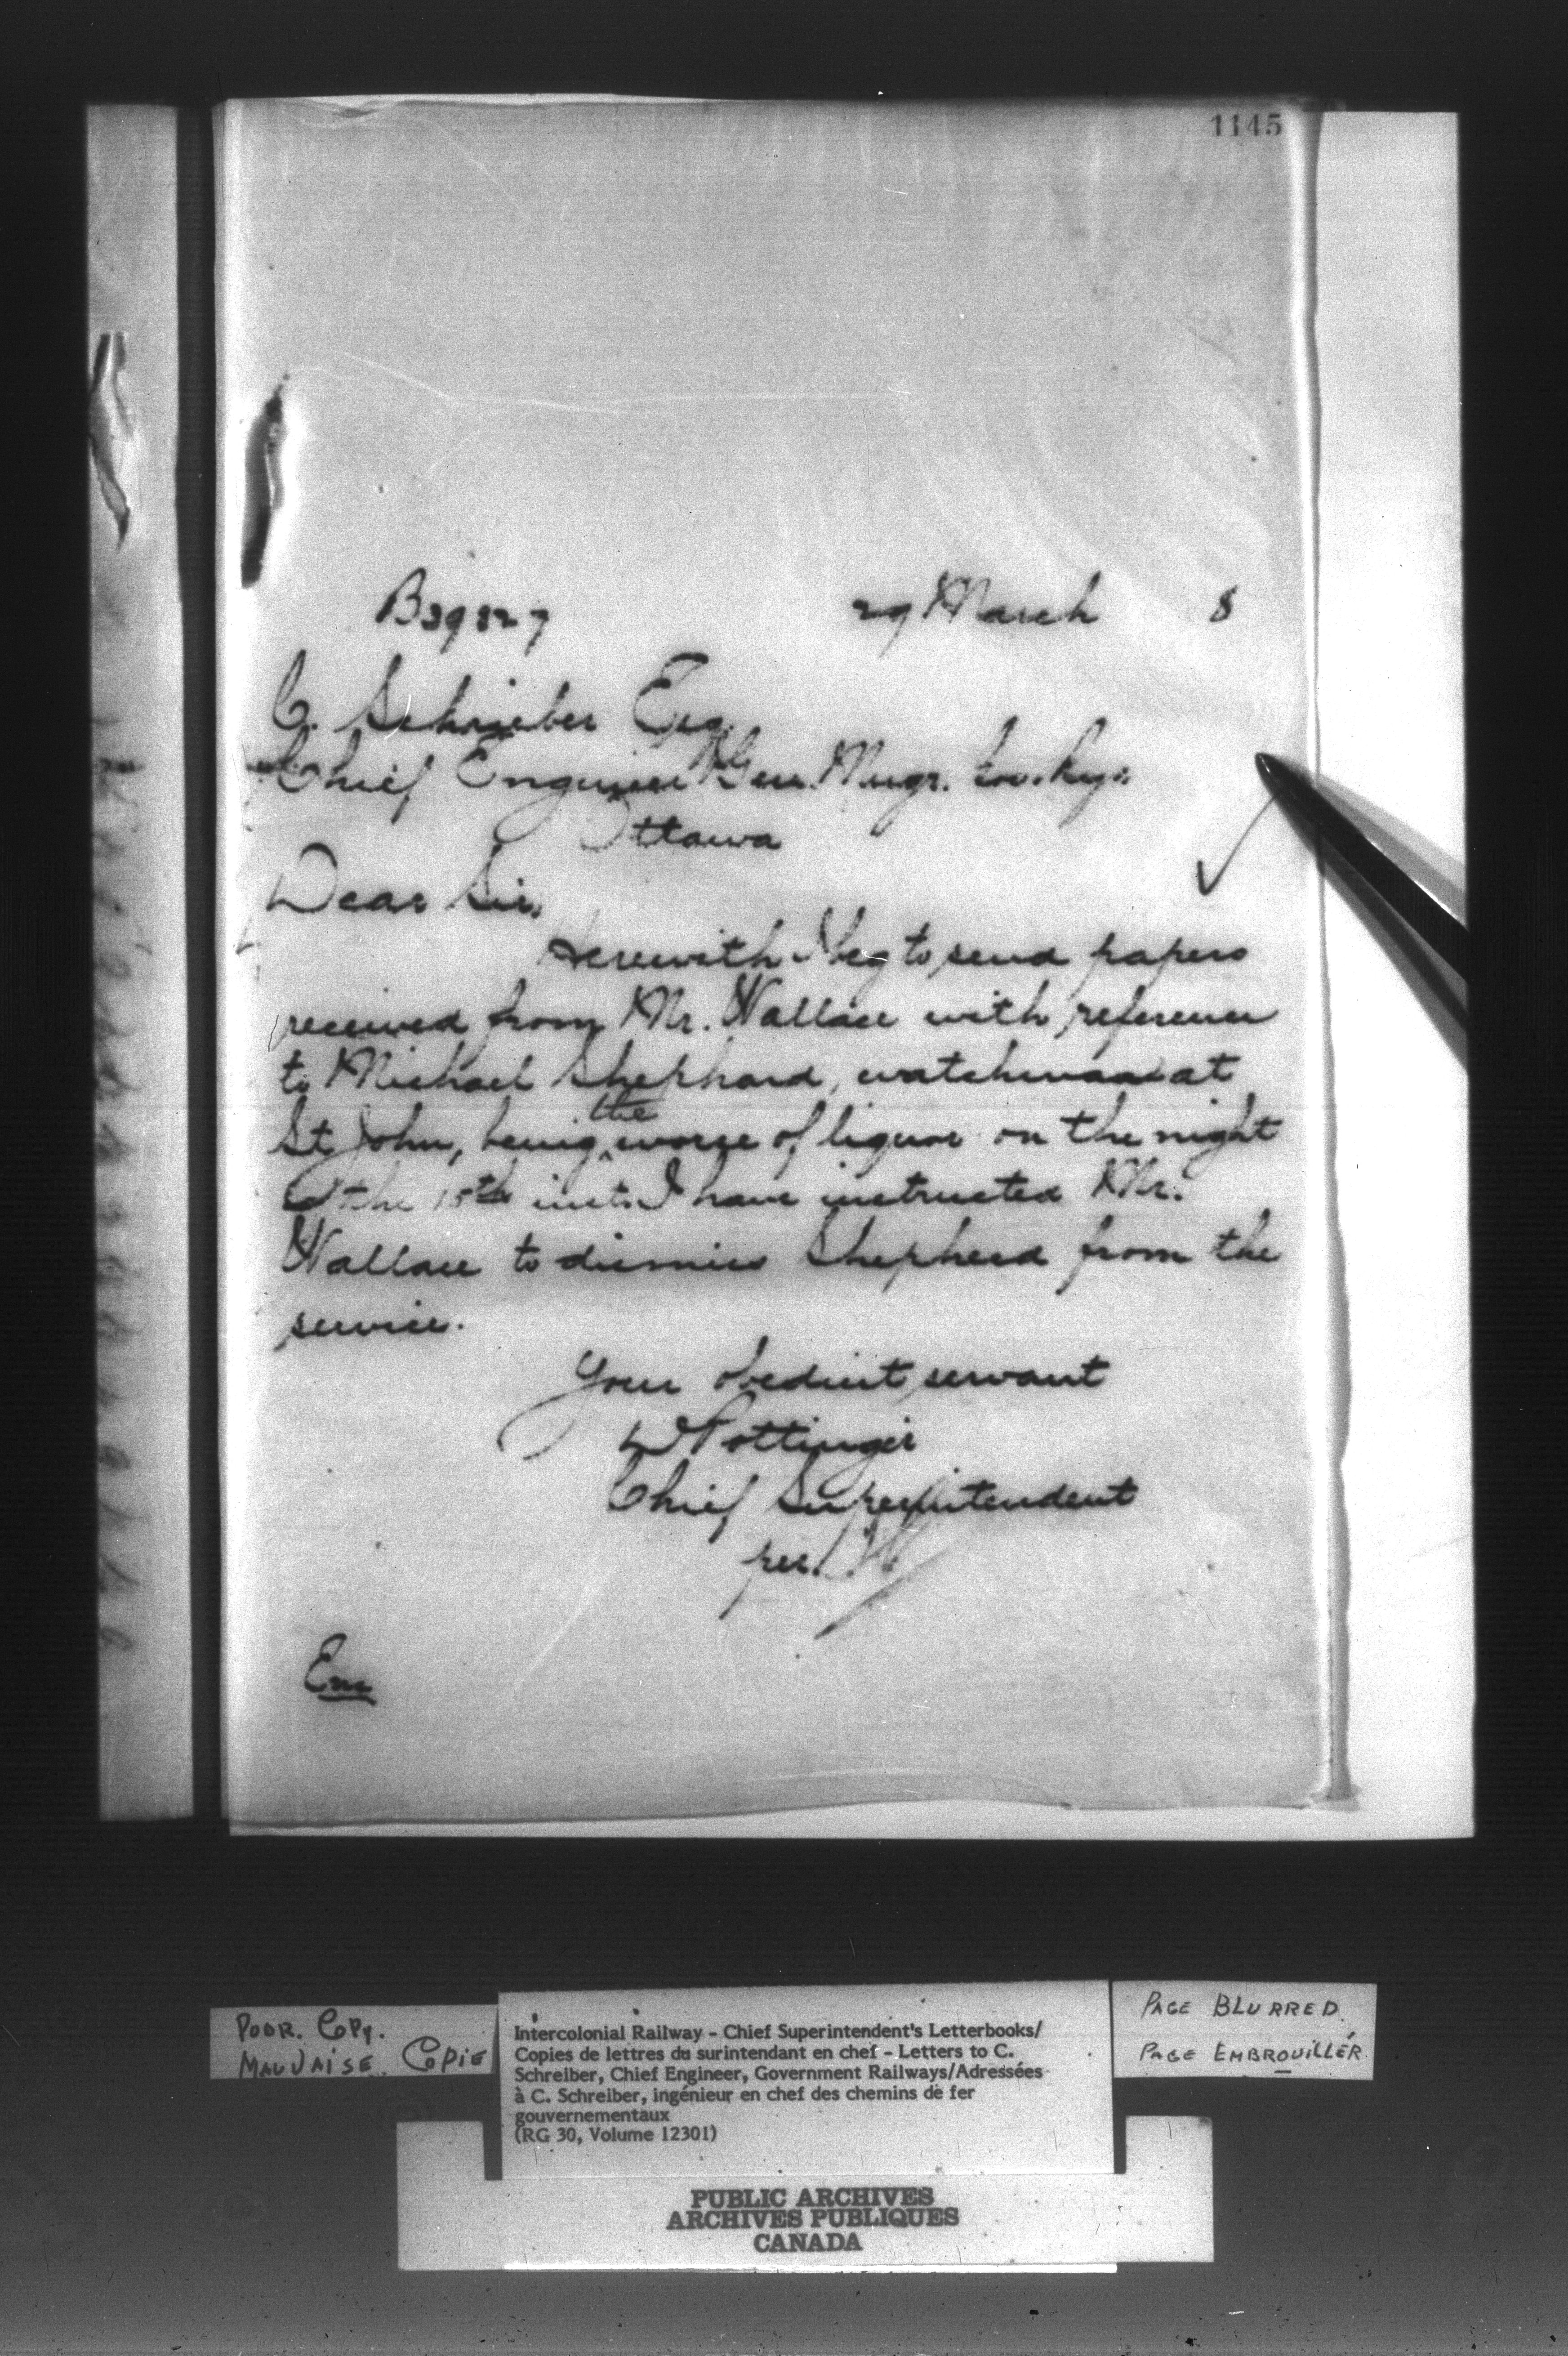 1145
B39827 29 March 8
C. Schrieber Esq
Chief Engineer & Gen. Mngr. Gov. Rys:
Ottawa
Dear Sir,
Herewith I beg to send papers
received from Mr. Wallace with reference
to Michael Shephard, watchman at
St John, being the worse of liquor on the night
of the 15th inst. I have instructed Mr.
Wallace to dismiss Shepherd from the
service.
Your obedient servant
D Pottinger
Chief Superintendent
per.
POOR. COPY.
MAUVAISE COPIE
Intercolonial Railway - Chief Superintendent's Letterbooks/
Copies de lettres du surintendant en chef - Letters to C.
Schreiber, Chief Engineer, Government Railways/Adressées
à C. Schreiber, ingénieur en chef des chemins de fer
gouvernementaux
(RG 30, Volume 12301)
PAGE BLURRED.
PAGE EMBROUILLÉR
PUBLIC ARCHIVES
ARCHIVES PUBLIQUES
CANADA